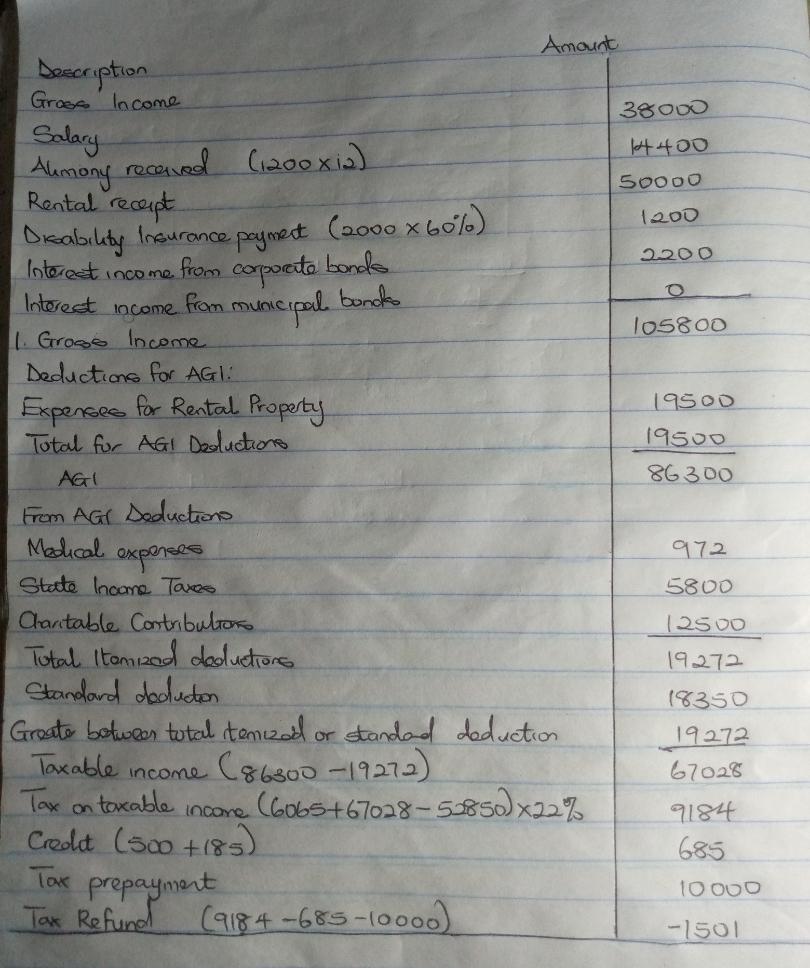 Amount
Description
Gross Income
Salary 38000
Alimony received (1200 x 12) 14400
Rental receipt 50000
Disability Insurance payment (2000 x 60%) 1200
Interest income from corporate bonds 2200
Interest income from municipal bonds 0
1. Gross Income 105800
Deductions for AGI:
Expenses for Rental Property 19500
Total for AGI Deductions 19500
AGI 86300
From AGI Deductions
Medical expenses 972
State Income Taxes 5800
Charitable Contributions 12500
Total Itemized deductions 19272
Standard deduction 18350
Greate between total itemized or standard deduction 19272
Taxable income (86300 - 19272) 67028
Tax on taxable income (6065 + 67028 - 52850) x 22% 9184
Credit (500 + 185) 685
Tax prepayment 10000
Tax Refund (9184 - 685 - 10000) -1501